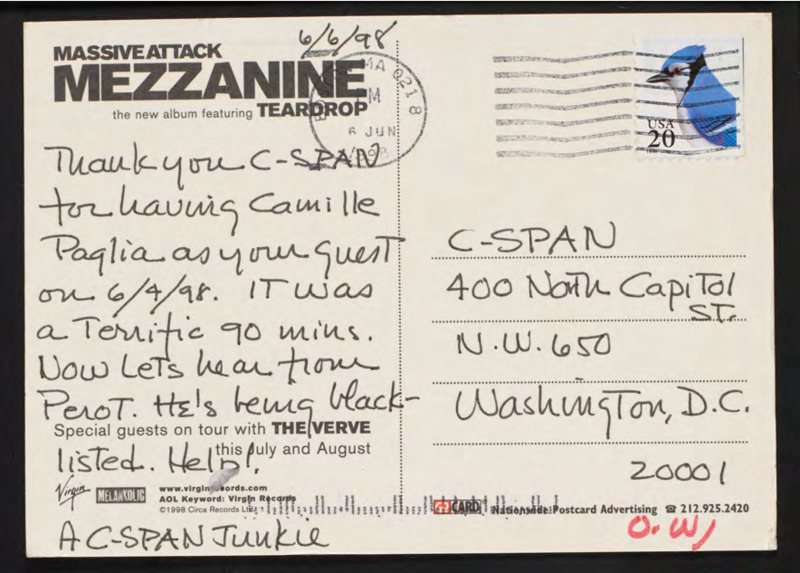 6/6/98
MASSIVE ATTACK
MEZZANINE
the new album featuring TEARDROP
MA 0218
M
6 JUN
1998
USA
20
Thank you C-SPAN
for having Camille
Paglia as your guest
on 6/4/98. IT was
a Terrific 90 mins.
Now LeTs hear from
PeroT. He's being black-
Special guests on tour with THE VERVE
this July and August
listed. Help!
Virgin
MELANKOLIC
www.virginrecords.com
AOL Keyword: Virgin Records
©1998 Circa Records Ltd.
A C-SPAN Junkie
C-SPAN
400 North CapiTol
ST.
N.W. 650
WashingTon, D.C.
20001
CARD Nationwide Postcard Advertising ☎ 212.925.2420